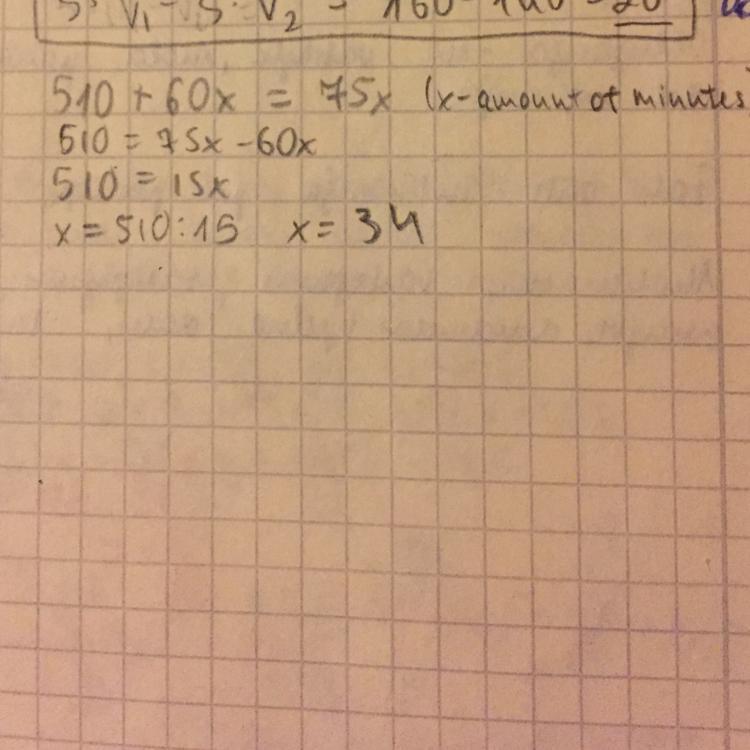 V₁ - S · V₂ = 160 - 140 = 20
510 + 60x = 75x (x-amount of minutes
510 = 75x - 60x
510 = 15x
x = 510 : 15 x = 34